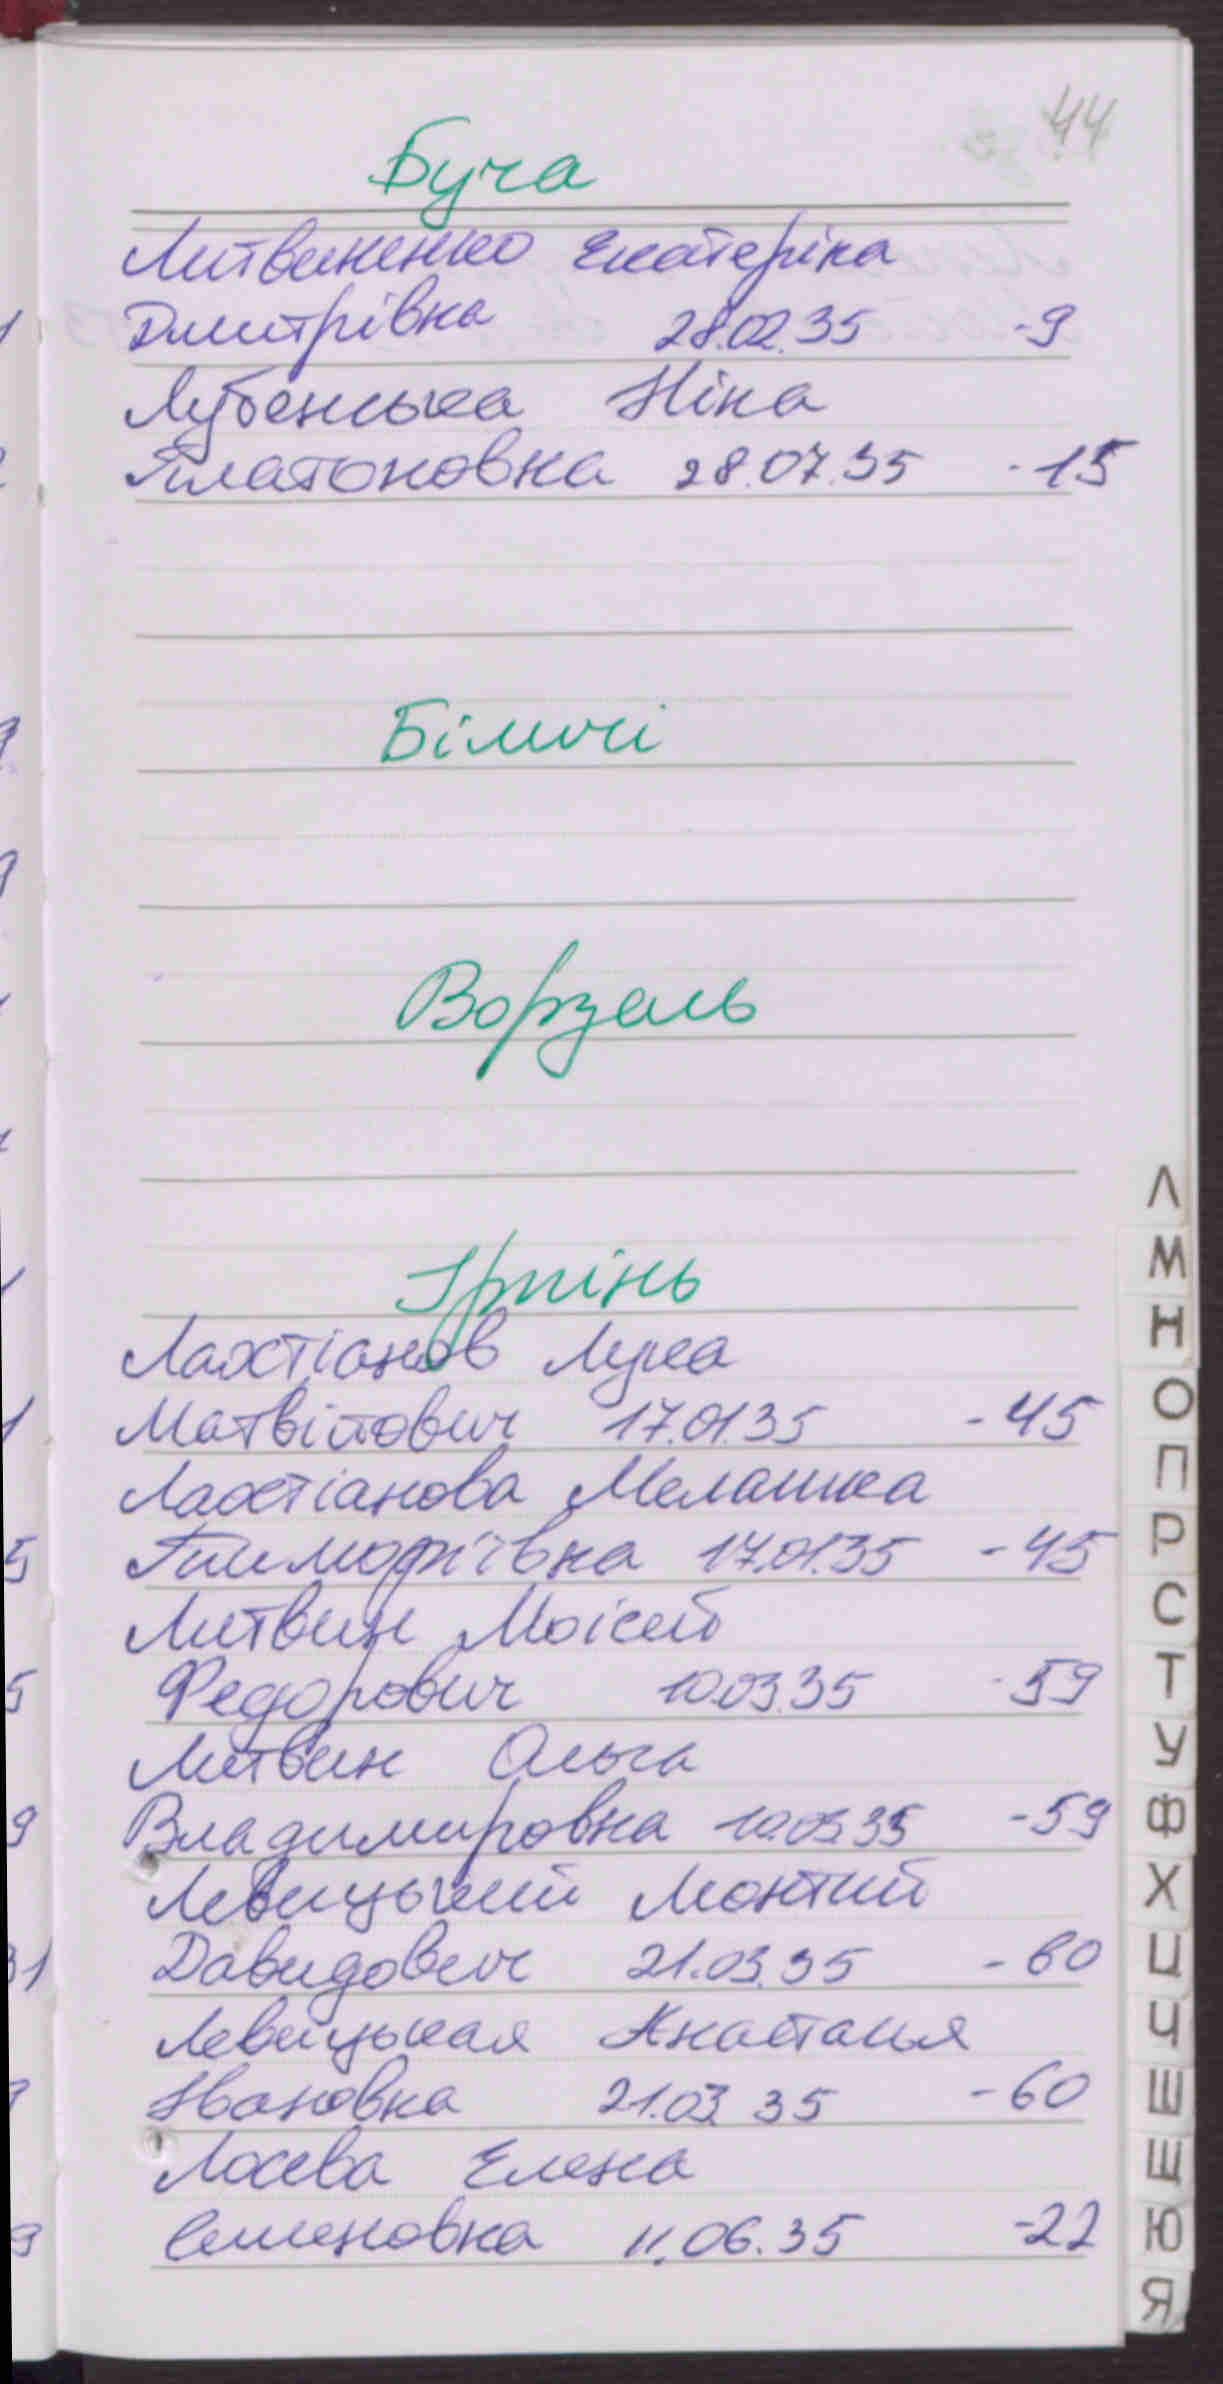 44
Буча
Литвиненко Екатеріна
Дмитрівна 28.02.35 -9
Лубенська Ніна
Платоновна 28.07.35 -15
Біличі
Ворзель
Ірпінь
Лахтіанов Лука
Матвійович 17.01.35 -45
Лахтіанова Мелашка
Тимофіївна 17.01.35 -45
Литвин Моісей
Федорович 10.03.35 -59
Литвин Ольга
Владимировна 10.03.35 -59
Левицький Монтий
Давидович 21.03.35 -60
Левицькая Анастасья
Ивановка 21.03 35 -60
Лосева Елена
Семеновна 11.06.35 -22
Л
М
Н
О
П
Р
С
Т
У
Ф
Х
Ц
Ч
Ш
Щ
Ю
Я